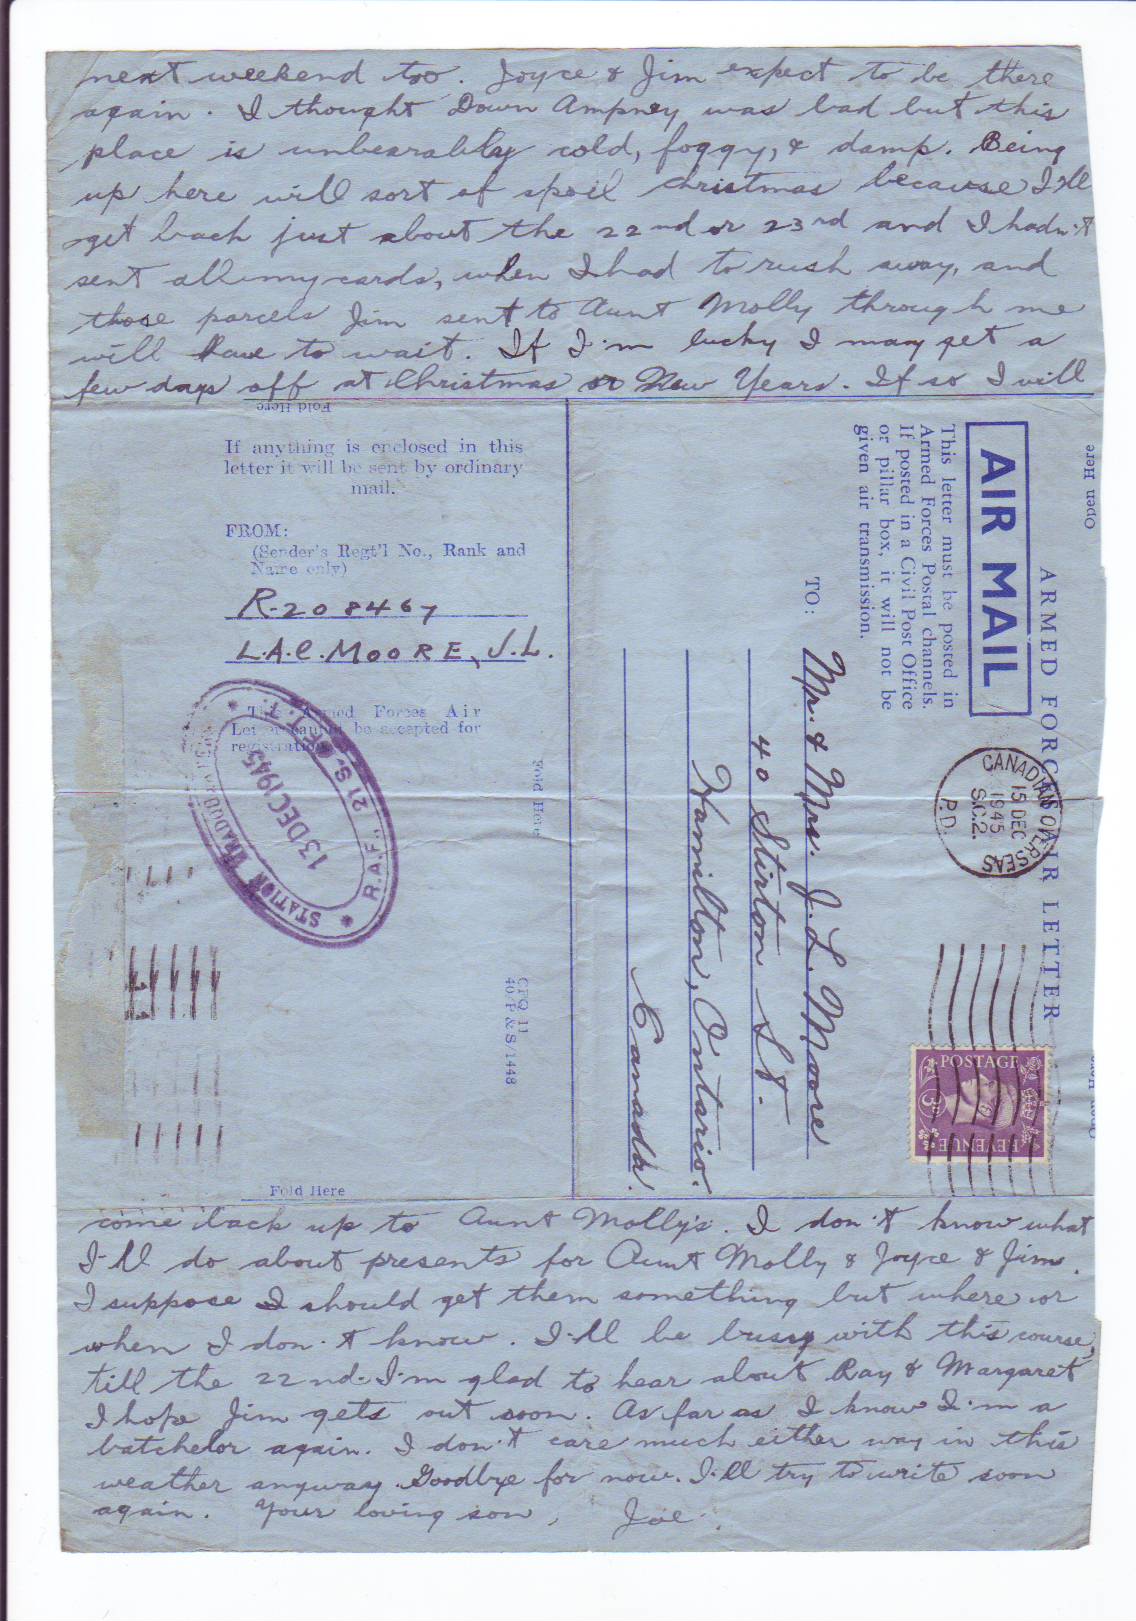 next weekend too. Joyce & Jim expect to be there
again. I thought Down Ampney was bad but this
place is unbearably cold, foggy, & damp. Being
up here will sort of spoil christmas because I'll
get back just about the 22nd or 23rd and I hadn't
sent all my cards, when I had to rush away, and
those parcels Jim sent to Aunt Molly through me
will have to wait. If I'm lucky I may get a
few days off at Christmas or New Years. If so I will
Fold Here
If anything is enclosed in this
letter it will be sent by ordinary
mail.
FROM:
(Sender's Regt'l No., Rank and
Name only)
R-208467
L.A.C. MOORE, J.L.
This Armed Forces Air
Letter cannot be accepted for
registration
R.A.F., 21 S.
13 DEC 1945
STATION
Fold Here
CFQ 11
40/P & S/1448
Fold Here
Open Here
ARMED FORCES AIR LETTER
AIR MAIL
This letter must be posted in
Armed Forces Postal channels.
If posted in a Civil Post Office
or pillar box, it will not be
given air transmission.
CANADIAN OVERSEAS
15 DEC
1945
S.C.2.
P.D.
POSTAGE
3D
REVENUE
TO:
Mr. & Mrs. J. L. Moore
40 Stirton St.
Hamilton, Ontario.
Canada.
come back up to Aunt Molly's. I don't know what
I'll do about presents for Aunt Molly & Joyce & Jim.
I suppose I should get them something but where or
when I don't know. I'll be bussy with this course,
till the 22nd. I'm glad to hear about Ray & Margaret
I hope Jim gets out soon. As far as I know I'm a
batchelor again. I don't care much either way in this
weather anyway. Goodbye for now. I'll try to write soon
again. Your loving son, Joe.